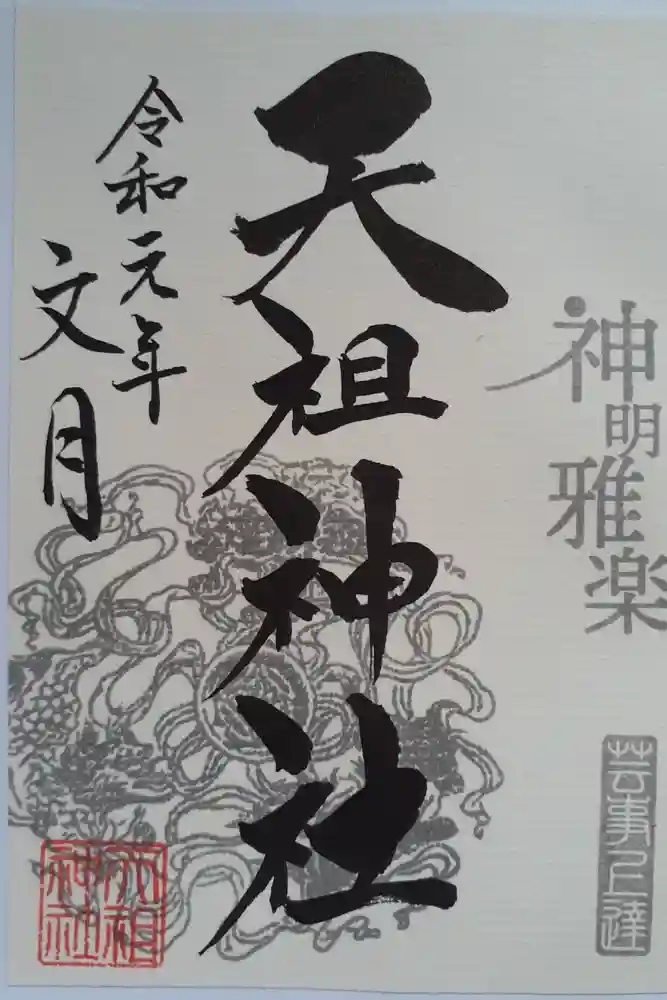 神明雅楽
芸事上達
天祖神社
令和元年
文月
天祖
神社